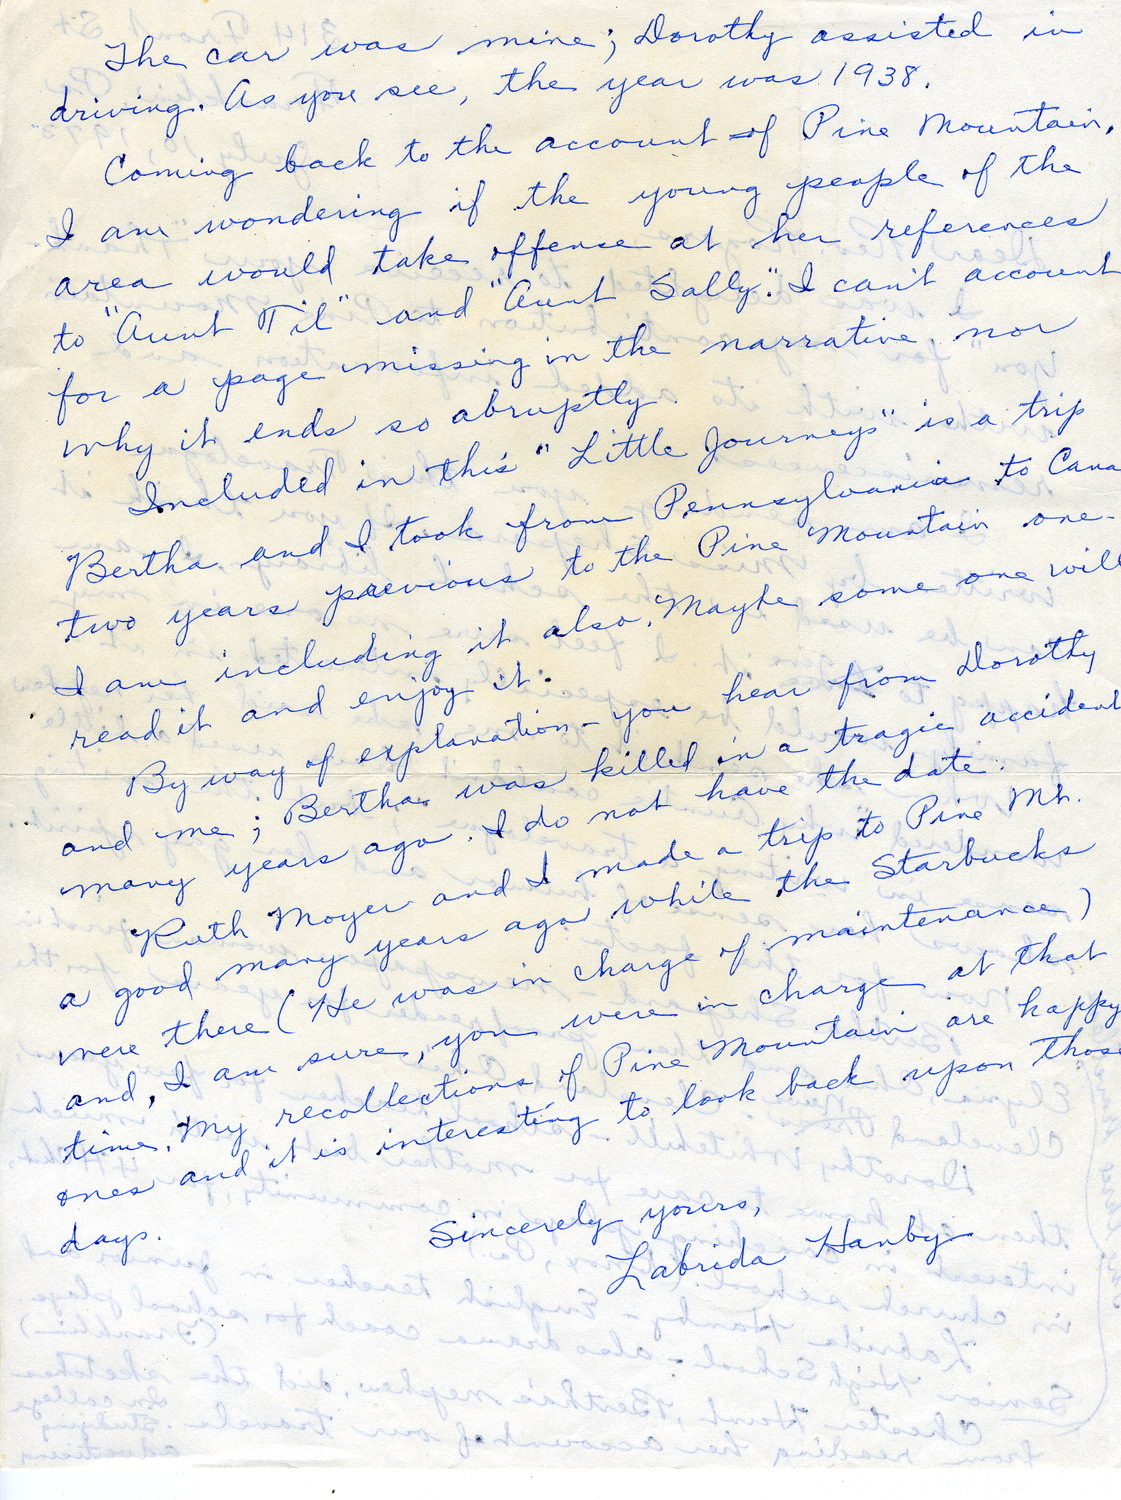 The car was mine; Dorothy assisted in
driving. As you see, the year was 1938.
Coming back to the account of Pine Mountain,
I am wondering if the young people of the
area would take offense at her references
to "Aunt Til" and "Aunt Sally". I can't account
for a page missing in the narrative, nor
why it ends so abruptly.
Included in this "Little Journeys" is a trip
Bertha and I took from Pennsylvania to Cana
two years previous to the Pine Mountain one-
I am including it also. Maybe some one will
read it and enjoy it.
By way of explanation - you hear from Dorothy
and me; Bertha was killed in a tragic accident
many years ago. I do not have the date.
Ruth Moyer and I made a trip to Pine Mt.
a good many years ago while the Starbucks
were there (He was in charge of maintenance)
and, I am sure, you were in charge at that
time. My recollections of Pine Mountain are happy
ones and it is interesting to look back upon those
days.
Sincerely yours,
Labrida Hanby